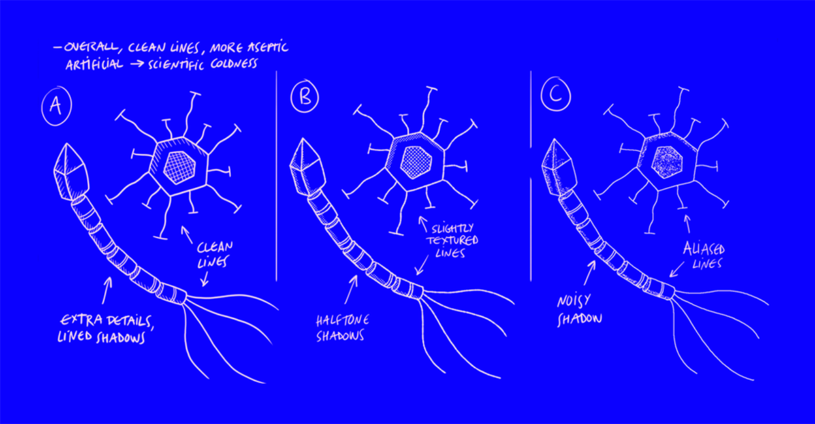 – OVERALL, CLEAN LINES, MORE ASEPTIC
ARTIFICIAL → SCIENTIFIC COLDNESS
A
CLEAN
LINES
EXTRA DETAILS,
LINED SHADOWS
B
SLIGHTLY
TEXTURED
LINES
HALFTONE
SHADOWS
C
ALIASED
LINES
NOISY
SHADOW